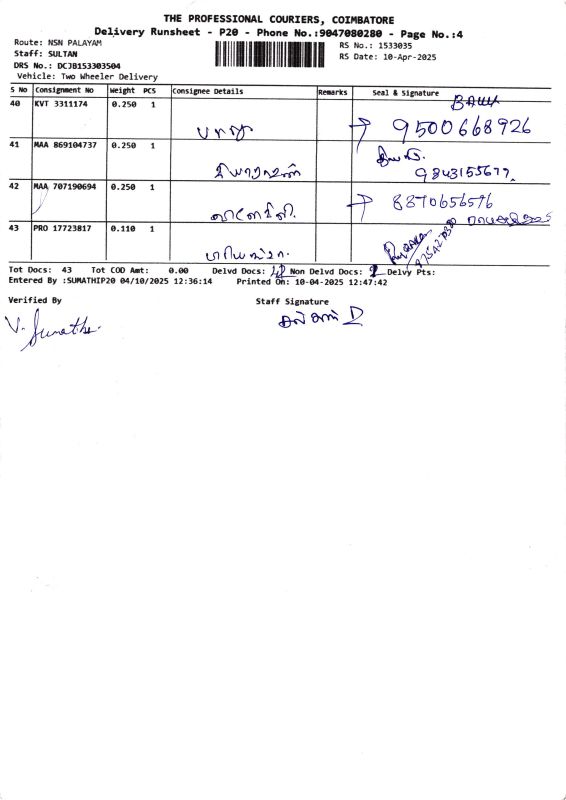 THE PROFESSIONAL COURIERS, COIMBATORE
Delivery Runsheet - P20 - Phone No.:9047080280 - Page No.:4
Route: NSN PALAYAM
Staff: SULTAN
DRS No.: DCJB153303504
Vehicle: Two Wheeler Delivery
RS No.: 1533035
RS Date: 10-Apr-2025
S No Consignment No Weight PCS Consignee Details Remarks Seal & Signature
40 KVT 3311174 0.250 1
பாபு
9500668926
41 MAA 869104737 0.250 1
9843155677
42 MAA 707190694 0.250 1
8870656576
43 PRO 17723817 0.110 1
Tot Docs: 43 Tot COD Amt: 0.00 Delvd Docs: Non Delvd Docs: Delvy Pts:
Entered By :SUMATHIP20 04/10/2025 12:36:14 Printed On: 10-04-2025 12:47:42
Verified By Staff Signature
V. Sumathi